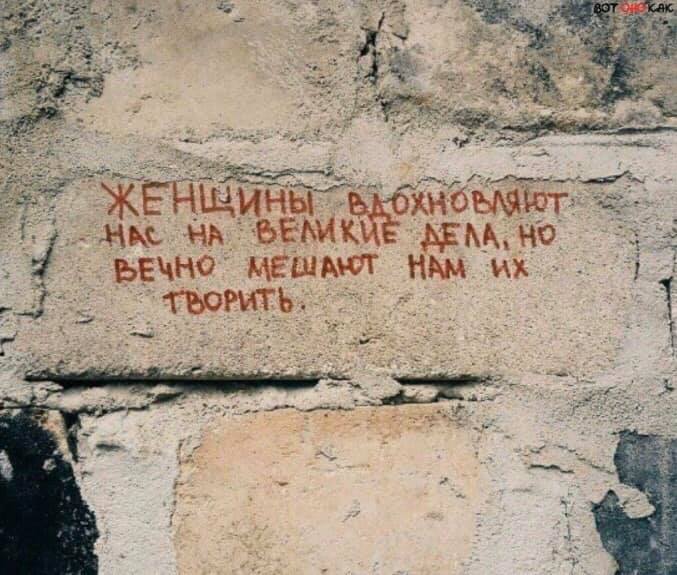 ВОТ ОНО КАК
ЖЕНЩИНЫ ВДОХНОВЛЯЮТ
НАС НА ВЕЛИКИЕ ДЕЛА, НО
ВЕЧНО МЕШАЮТ НАМ ИХ
ТВОРИТЬ.